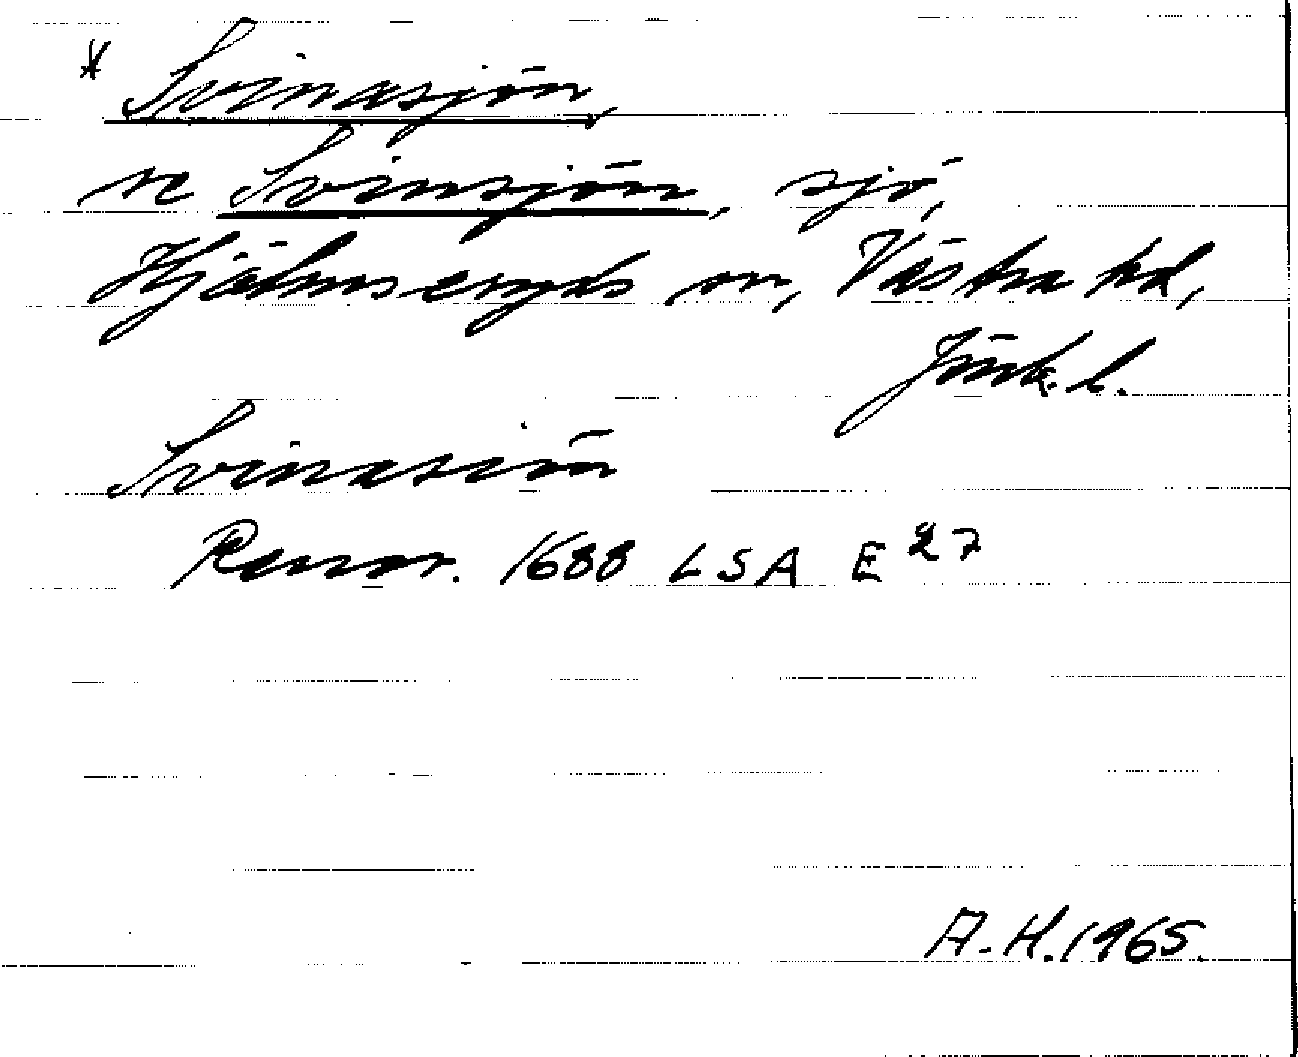 * Svinasjön,
se Svinsjön, sjö,
Hjälmseryds sn, Västra hd,
Jönk. l.
Svinasiön
Renov. 1688 LSA E 27
A.H. 1965.